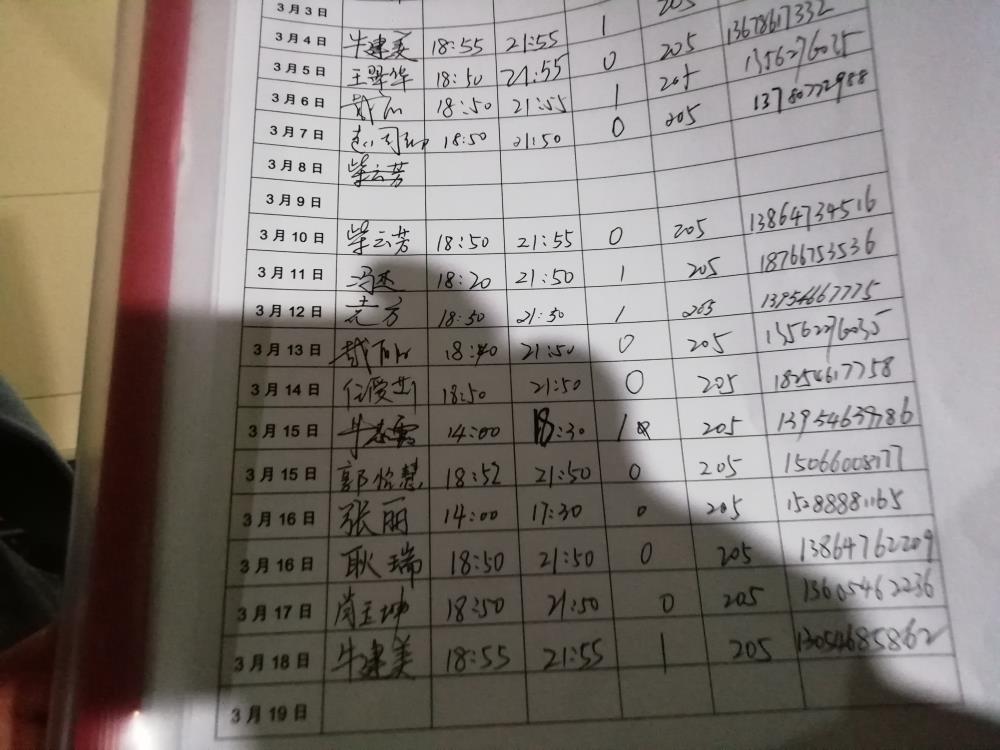 3月3日 205
3月4日 牛建美 18:55 21:55 1 205 13678617332
3月5日 王翠华 18:50 21:55 0 205 13562276035
3月6日 18:50 21:55 1 205 13780772988
3月7日 18:50 21:50 0
3月8日 柴云芳
3月9日
3月10日 柴云芳 18:50 21:55 0 205 13864734516
3月11日 冯杰 18:20 21:50 1 205 18766753536
3月12日 18:50 21:50 1 205 13954667775
3月13日 18:40 21:50 0 205 13562276035
3月14日 18:50 21:50 0 205 18254617758
3月15日 14:00 18:30 1 205
3月15日 郭怡慧 18:52 21:50 0 205 15066008177
3月16日 张丽 14:00 17:30 0 205 15288881165
3月16日 耿瑞 18:50 21:50 0 205 13864762209
3月17日 18:50 21:50 0 205 13605462236
3月18日 牛建美 18:55 21:55 1 205 13054685862
3月19日